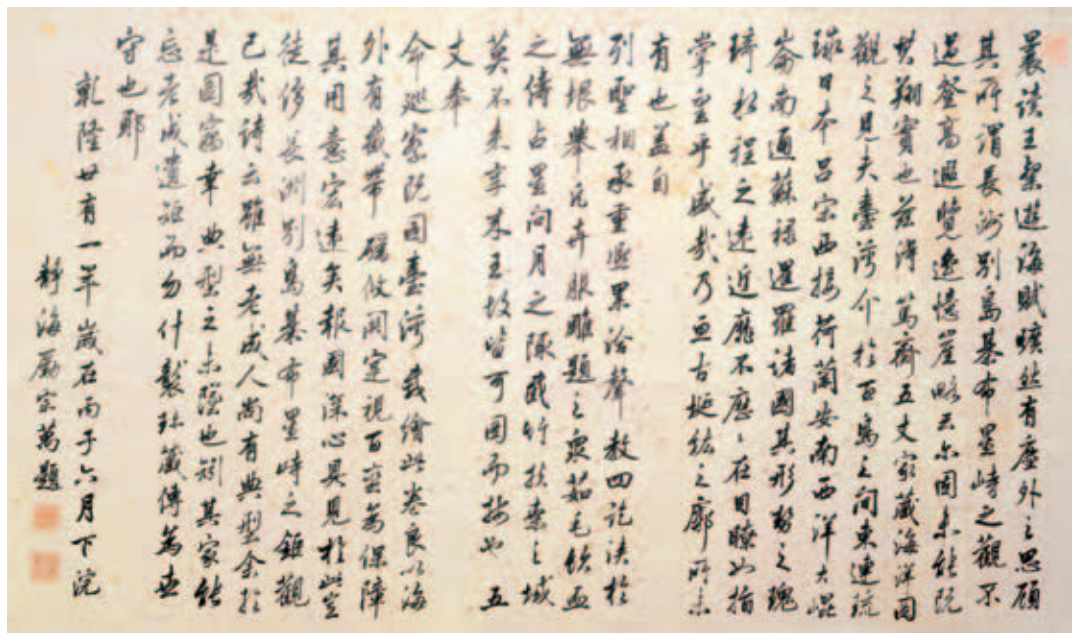 晨讀王粲遊海賦曠然有塵外之思顧
其所謂長洲別島基布星峙之觀不
過登高遐覽遙憶崖略云尔固未能阮
其翔實也茲得篤齋五丈家藏海洋圖
觀之見夫臺灣介於百島之間東連琉
球日本呂宋西接荷蘭安南西洋大崐
崙南通蘇祿暹羅諸國其形勢之瑰
琦水程之遠近靡不歷〻在目瞭如指
掌至乎盛哉乃亘古埏紘之廓所未
有也蓋自
列聖相承重熙累洽聲教四訖浹於
無垠舉凡卉服雕題之眾茹毛飲血
之儔占星向月之陬戴竹扶桑之域
莫不來享來王故皆可圖而按也五
丈奉
命巡察既圖臺灣
繪此卷良以海
外有截帶礪攸關定視百蠻為保障
其用意宏遠矣報國深心具見於此豈
徒侈長洲別島基布星峙之鉅觀
已哉詩云雖無老成人尚有典型余於
是圖竊幸典型之未墜也矧其家能
忘老成遺詎而勿什襲珎藏傳為世
守也耶
乾隆廿有一年歲在丙子六月下浣
靜海勵宗萬題